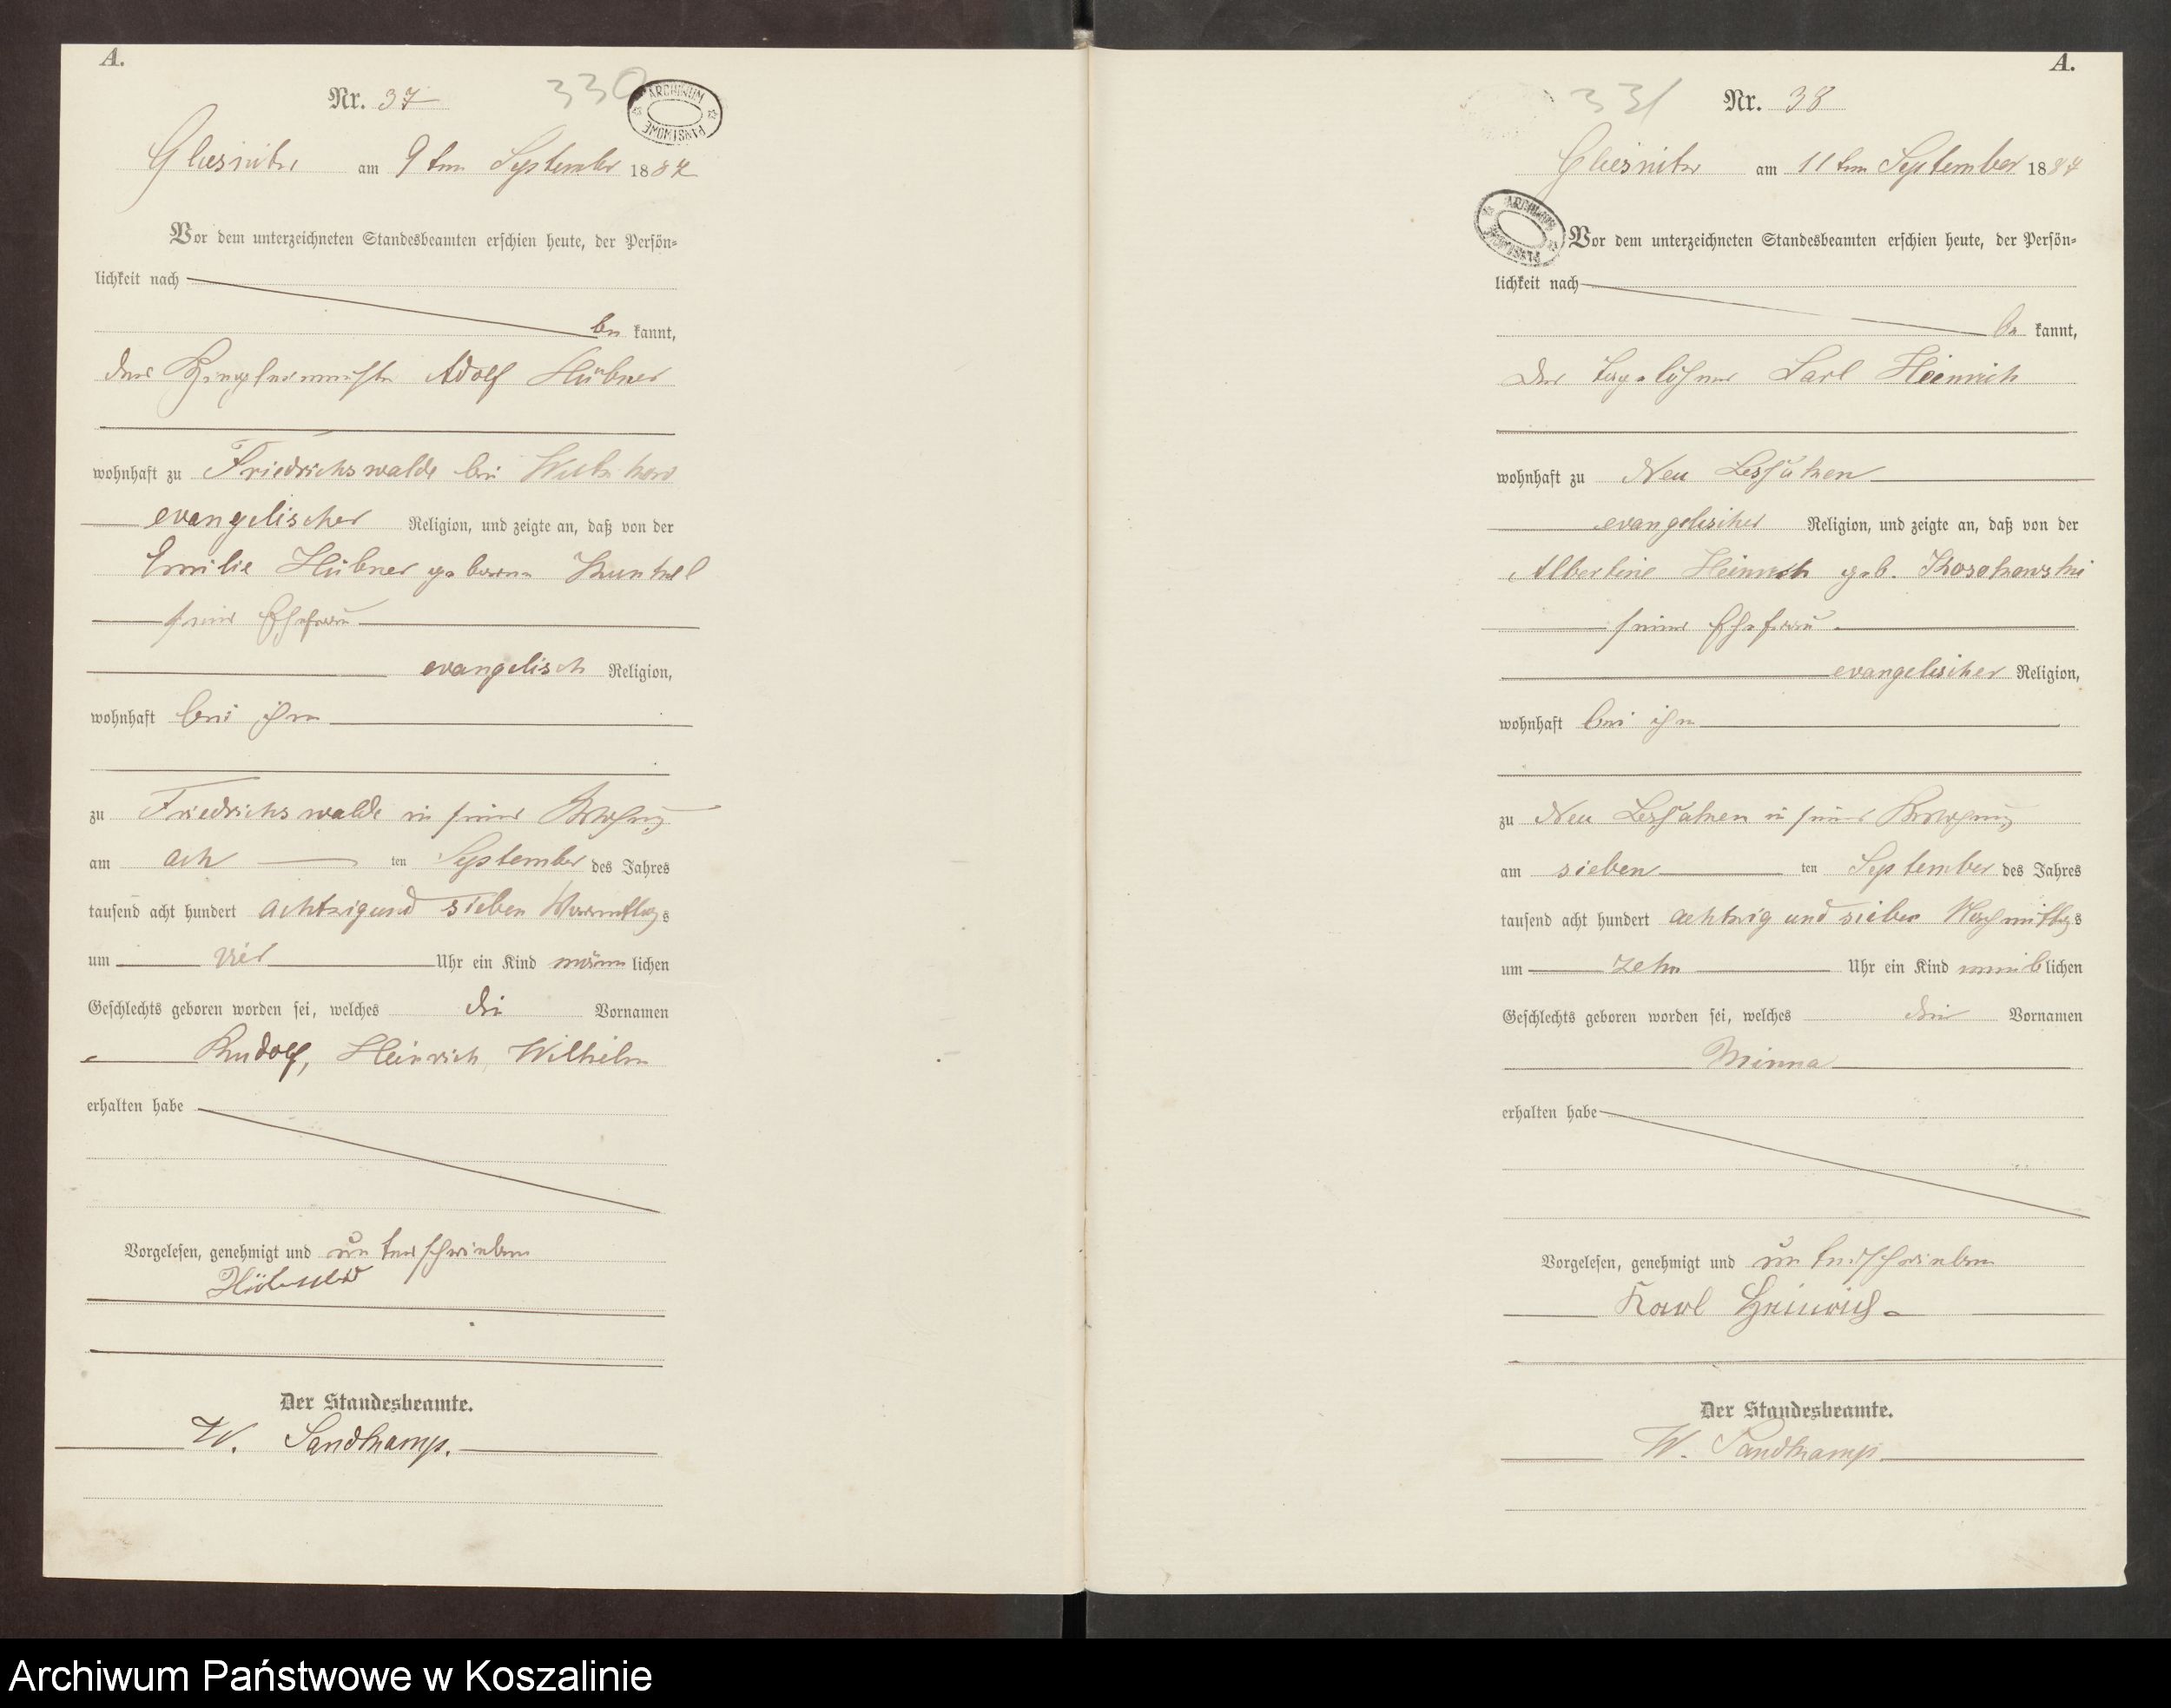 A.
Nr. 37
330
ARCHIWUM PAŃSTWOWE
am 9ten September 1887
Vor dem unterzeichneten Standesbeamten erschien heute, der Persön-
lichkeit nach
be kannt,
der Adolf Hübner
wohnhaft zu Friedrichswalde bei
evangelischer Religion, und zeigte an, daß von der
Emilie Hübner geborene Kunkel
seine Ehefrau
evangelisch Religion,
wohnhaft bei ihm
zu Friedrichswalde in seiner Wohnung
am ach ten September des Jahres
tausend acht hundert achtzig und sieben Vormittags
um vier Uhr ein Kind männ lichen
Geschlechts geboren worden sei, welches die Vornamen
Rudolf, Heinrich, Wilhelm
erhalten habe
Vorgelesen, genehmigt und unterschrieben
Hübner
Der Standesbeamte.
W. Sandkamp.
A.
331
Nr. 38
am 11ten September 1887
ARCHIWUM PAŃSTWOWE
Vor dem unterzeichneten Standesbeamten erschien heute, der Persön-
lichkeit nach
be kannt,
der Tagelöhner Carl Heinrich
wohnhaft zu Neu
evangelischer Religion, und zeigte an, daß von der
Albertine Heinrich geb.
seiner Ehefrau
evangelischer Religion,
wohnhaft bei ihm
zu Neu in seiner Wohnung
am sieben ten September des Jahres
tausend acht hundert achtzig und sieben Nachmittags
um zehn Uhr ein Kind weib lichen
Geschlechts geboren worden sei, welches den Vornamen
Minna
erhalten habe
Vorgelesen, genehmigt und unterschrieben
Karl Heinrich
Der Standesbeamte.
W. Sandkamp.
Archiwum Państwowe w Koszalinie